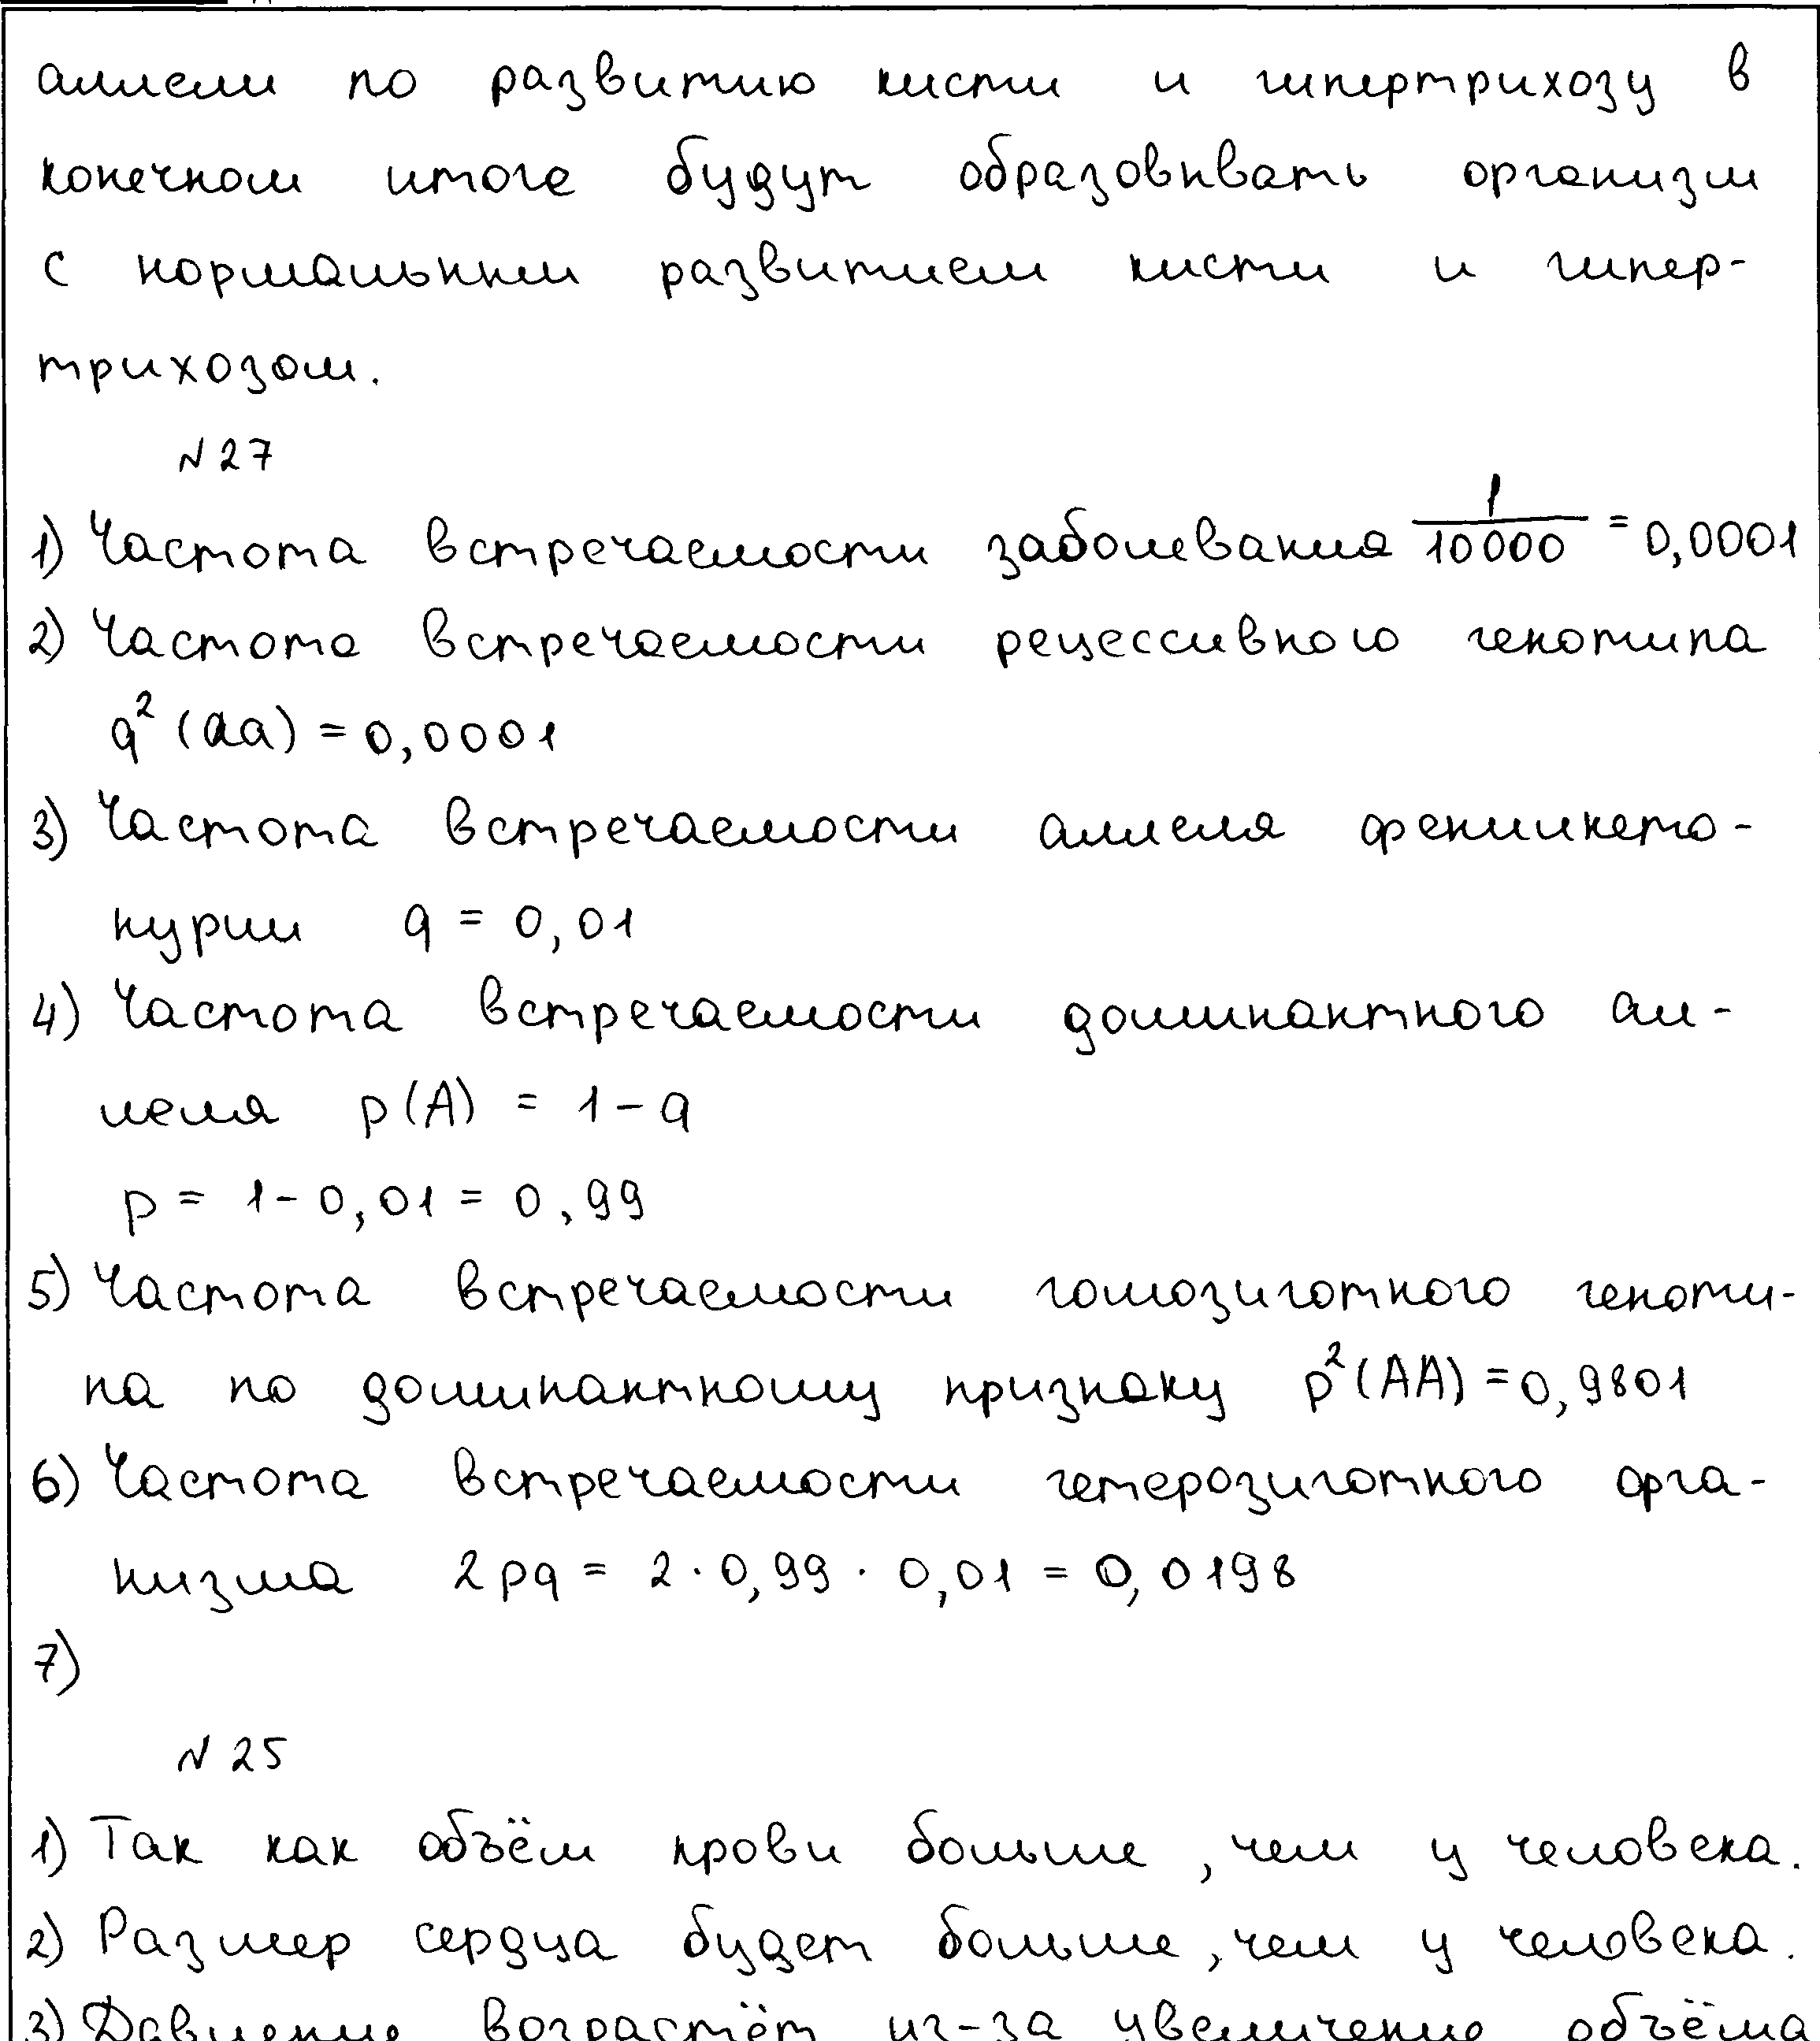 аллели по развитию кисти и гипертрихозу в
конечном итоге будут образовывать организм
с нормальным развитием кисти и гипер-
трихозом.
N27
1) Частота встречаемости заболевания 1/10000 = 0,0001
2) Частота встречаемости рецессивного генотипа
q² (aa) = 0,0001
3) Частота встречаемости аллеля фенилкето-
нурии q = 0,01
4) Частота встречаемости доминантного ал-
леля p(A) = 1 - q
p = 1 - 0,01 = 0,99
5) Частота встречаемости гомозиготного геноти-
па по доминантному признаку p²(AA) = 0,9801
6) Частота встречаемости гетерозиготного орга-
низма 2pq = 2 · 0,99 · 0,01 = 0,0198
7)
N25
1) Так как объём крови больше, чем у человека.
2) Размер сердца будет больше, чем у человека.
3) Давление возрастёт из-за увеличение объёма